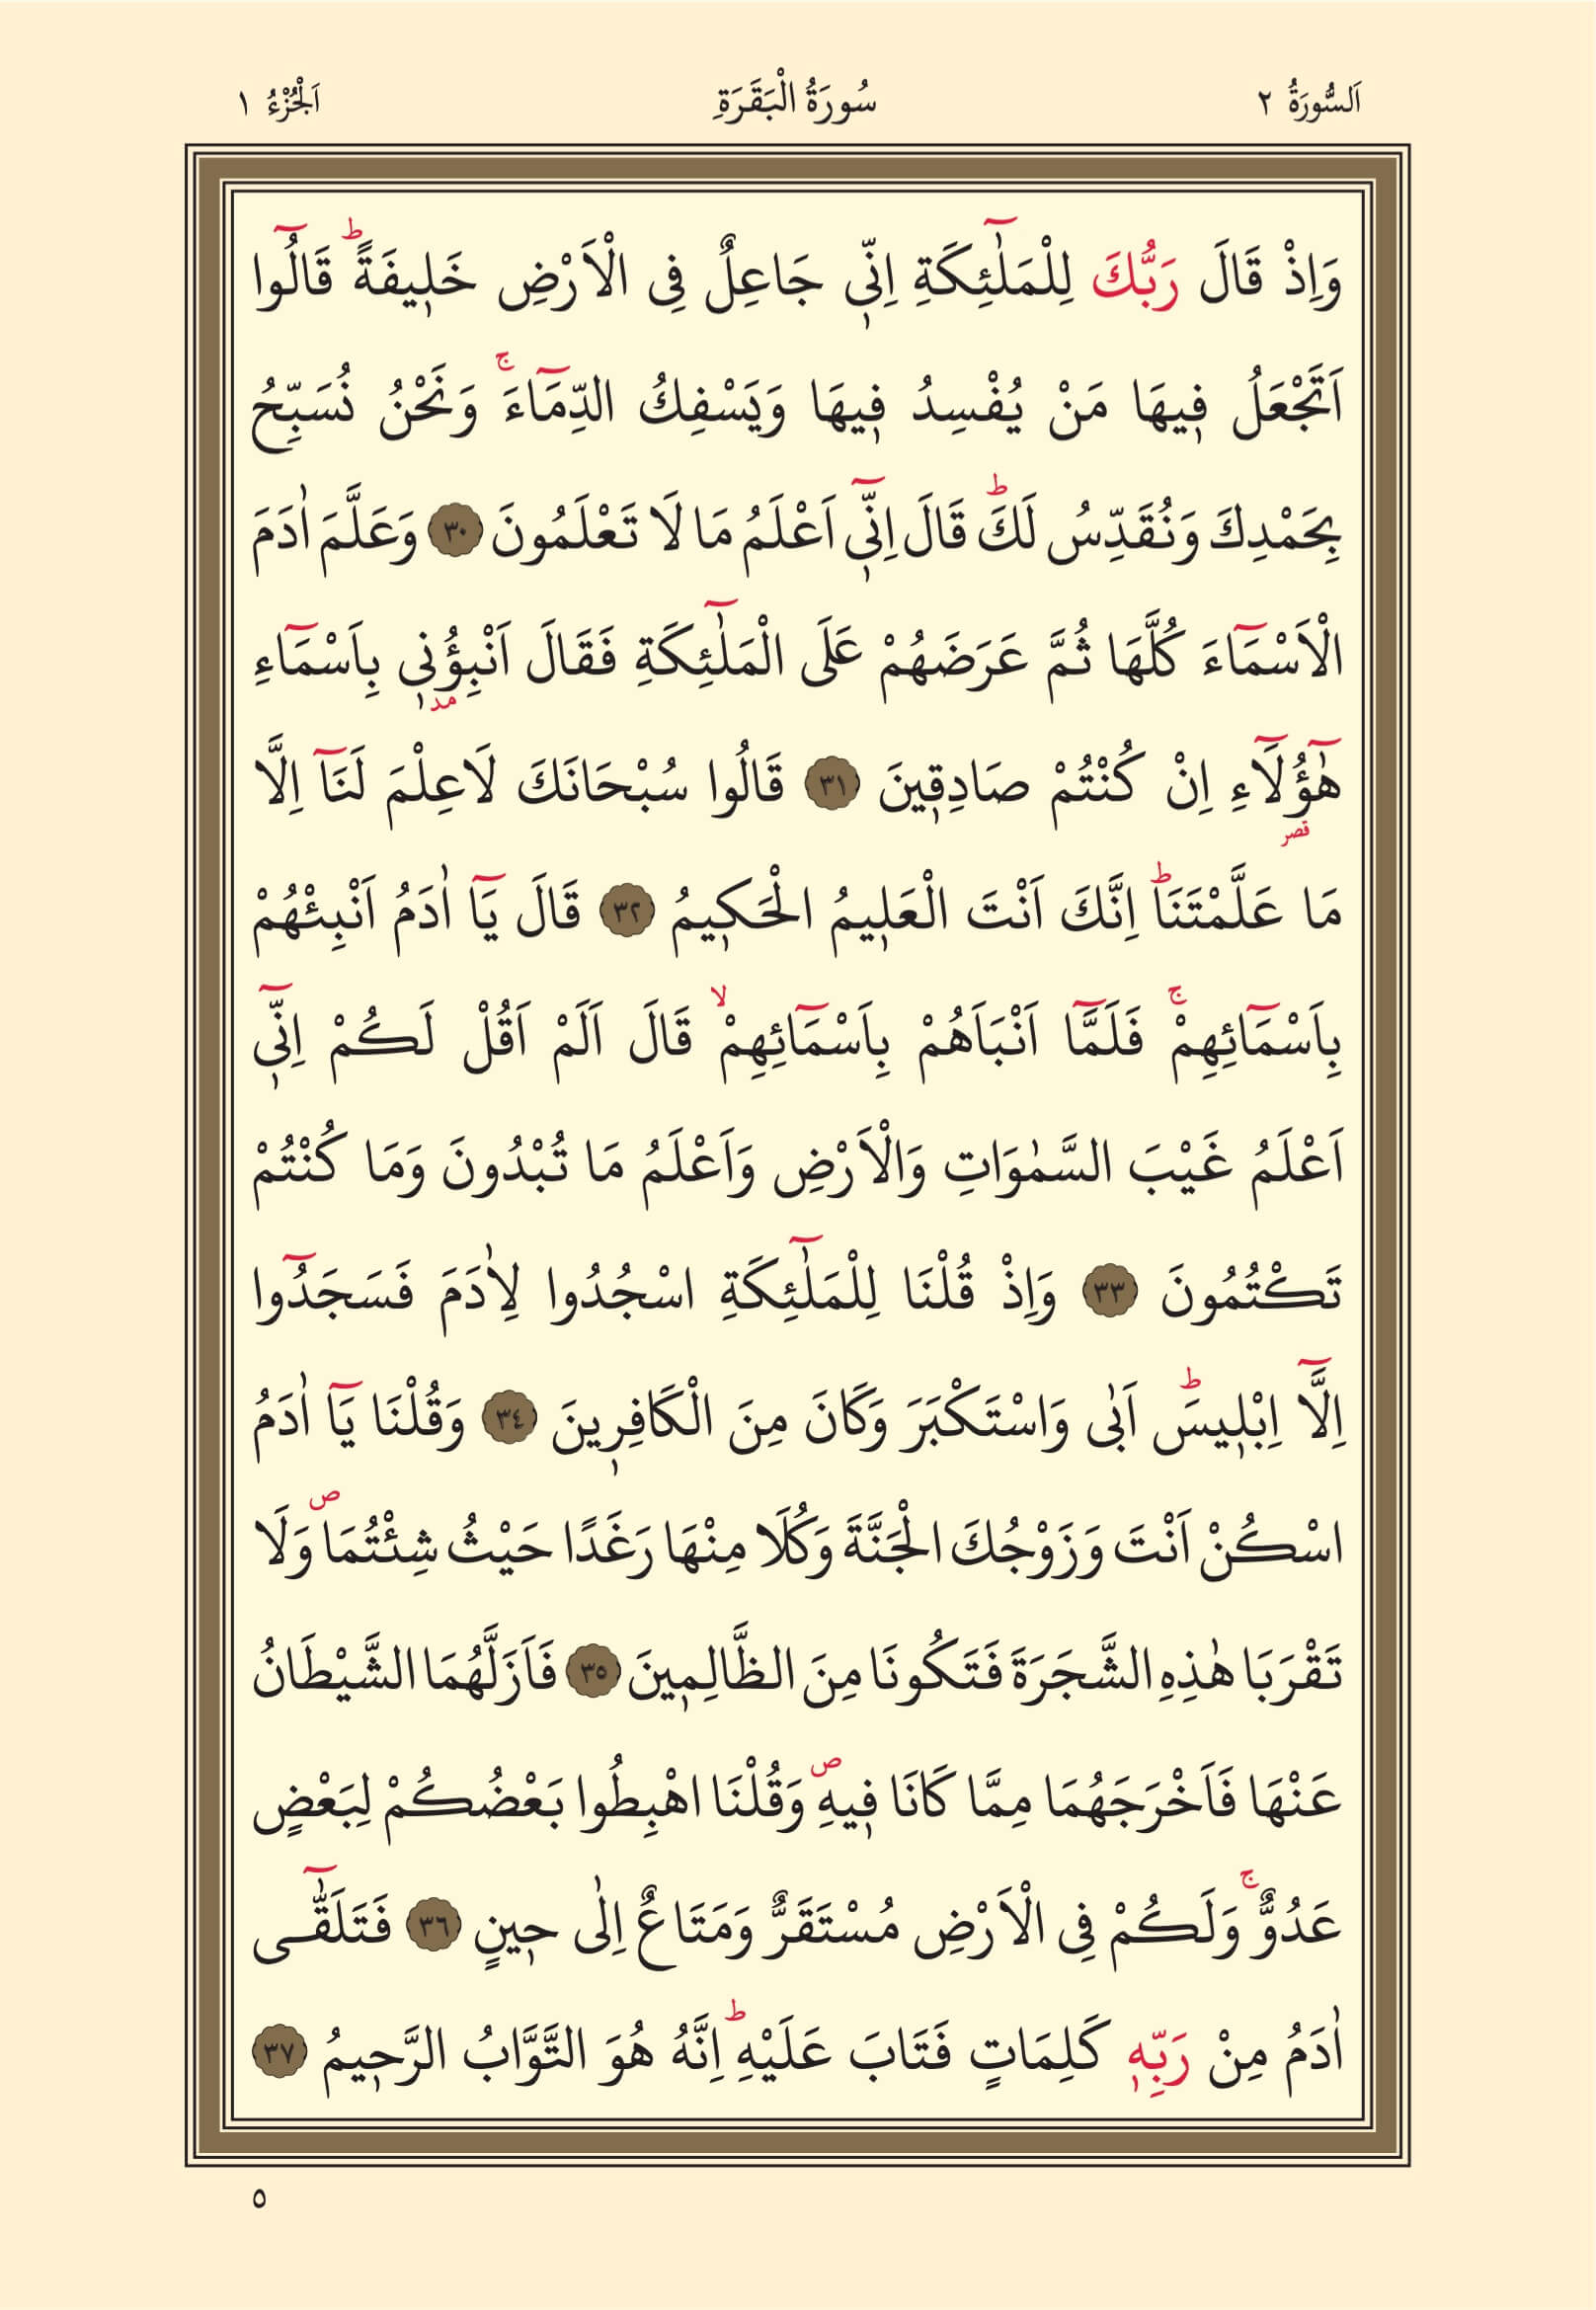 اَلسُّورَةُ ٢ سُورَةُ الْبَقَرَةِ اَلْجُزْءُ ١
وَاِذْ قَالَ رَبُّكَ لِلْمَلٰٓئِكَةِ اِنّ۪ي جَاعِلٌ فِي الْاَرْضِ خَل۪يفَةًۜ قَالُٓوا
اَتَجْعَلُ ف۪يهَا مَنْ يُفْسِدُ ف۪يهَا وَيَسْفِكُ الدِّمَٓاءَۚ وَنَحْنُ نُسَبِّحُ
بِحَمْدِكَ وَنُقَدِّسُ لَكَۜ قَالَ اِنّ۪ٓي اَعْلَمُ مَا لَا تَعْلَمُونَ ٣٠ وَعَلَّمَ اٰدَمَ
الْاَسْمَٓاءَ كُلَّهَا ثُمَّ عَرَضَهُمْ عَلَى الْمَلٰٓئِكَةِ فَقَالَ اَنْبِؤُ۫ن۪ي بِاَسْمَٓاءِ
مد
هٰٓؤُ۬لَٓاءِ اِنْ كُنْتُمْ صَادِق۪ينَ ٣١ قَالُوا سُبْحَانَكَ لَاعِلْمَ لَنَٓا اِلَّا
قصر
مَا عَلَّمْتَنَاۜ اِنَّكَ اَنْتَ الْعَل۪يمُ الْحَك۪يمُ ٣٢ قَالَ يَٓا اٰدَمُ اَنْبِئْهُمْ
بِاَسْمَٓائِهِمْۚ فَلَمَّٓا اَنْبَاَهُمْ بِاَسْمَٓائِهِمْۙ قَالَ اَلَمْ اَقُلْ لَكُمْ اِنّ۪ٓي
اَعْلَمُ غَيْبَ السَّمٰوَاتِ وَالْاَرْضِ وَاَعْلَمُ مَا تُبْدُونَ وَمَا كُنْتُمْ
تَكْتُمُونَ ٣٣ وَاِذْ قُلْنَا لِلْمَلٰٓئِكَةِ اسْجُدُوا لِاٰدَمَ فَسَجَدُٓوا
اِلَّٓا اِبْل۪يسَۜ اَبٰى وَاسْتَكْبَرَ وَكَانَ مِنَ الْكَافِر۪ينَ ٣٤ وَقُلْنَا يَٓا اٰدَمُ
اسْكُنْ اَنْتَ وَزَوْجُكَ الْجَنَّةَ وَكُلَا مِنْهَا رَغَدًا حَيْثُ شِئْتُمَاۖ وَلَا
تَقْرَبَا هٰذِهِ الشَّجَرَةَ فَتَكُونَا مِنَ الظَّالِم۪ينَ ٣٥ فَاَزَلَّهُمَا الشَّيْطَانُ
عَنْهَا فَاَخْرَجَهُمَا مِمَّا كَانَا ف۪يهِۖ وَقُلْنَا اهْبِطُوا بَعْضُكُمْ لِبَعْضٍ
عَدُوٌّۚ وَلَكُمْ فِي الْاَرْضِ مُسْتَقَرٌّ وَمَتَاعٌ اِلٰى ح۪ينٍ ٣٦ فَتَلَقّٰٓى
اٰدَمُ مِنْ رَبِّه۪ كَلِمَاتٍ فَتَابَ عَلَيْهِۜ اِنَّهُ هُوَ التَّوَّابُ الرَّح۪يمُ ٣٧
٥